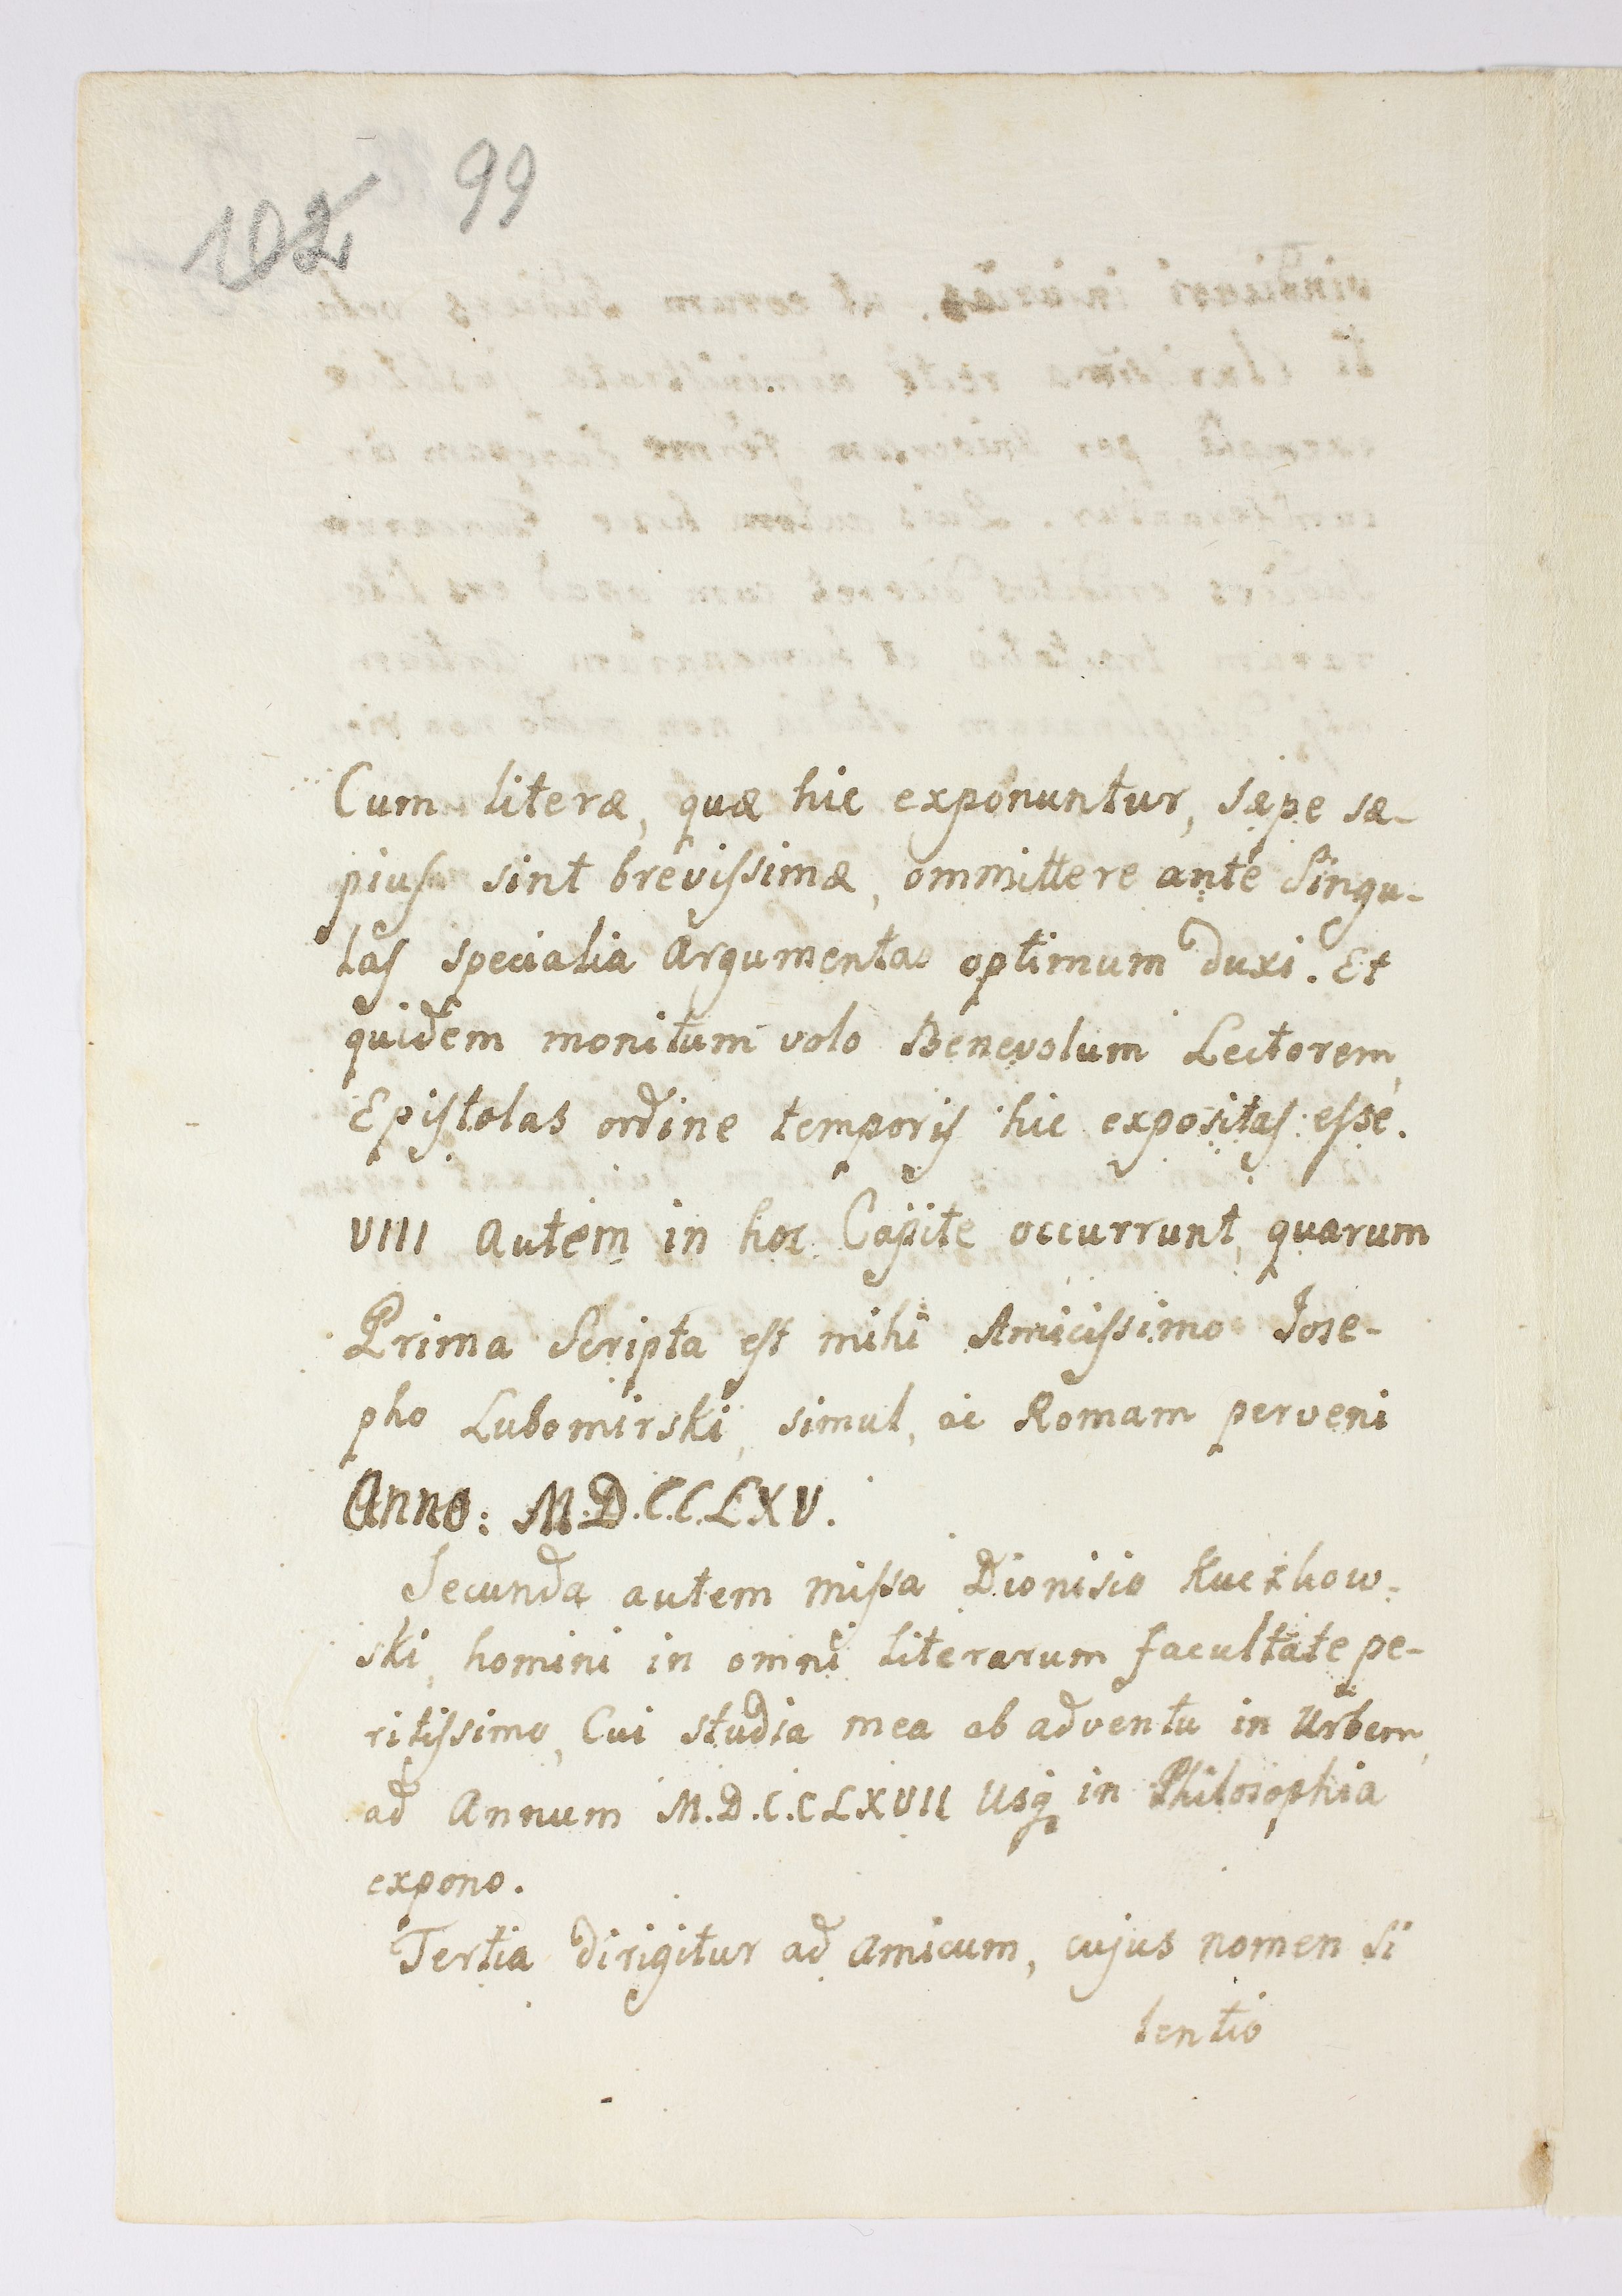 102 99
Cum literæ, quæ hic exponuntur, sæpe sæ-
pius sint brevissimæ, ommittere ante singu-
las specialia Argumenta optimum duxi. Et
quidem monitum volo Benevolum Lectorem,
Epistolas ordine temporis hic expositas esse.
VIII autem in hoc Capite occurrunt, quarum
Prima Scripta est mihi Amicissimo Iose-
pho Lubomirski, simul, ac Romam perveni
Anno: M.D.C.C.LXV.
Secunda autem missa Dionisio Kuczhow-
ski, homini in omni literarum facultate pe-
ritissimo, Cui studia mea ab adventu in Urbem,
ad Annum M.D.C.CLXVII Usq in Philosophia
expono.
Tertia dirigitur ad amicum, cujus nomen si
lentio